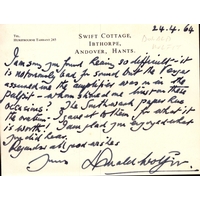 24.4.64
TEL.
HURSTBOURNE TARRANT 247
SWIFT COTTAGE,
IBTHORPE,
ANDOVER, HANTS.
I am sorry you found hearing so difficult – it
is notoriously bad for sound but the
assured me the amplifier was in the
pulpit – when should one use on these
occasions? The Southwark paper has
the oration. I gave it to them for what it
is worth! I am glad you say that
you did hear.
Regards and good wishes
Yours Donald Wolfit